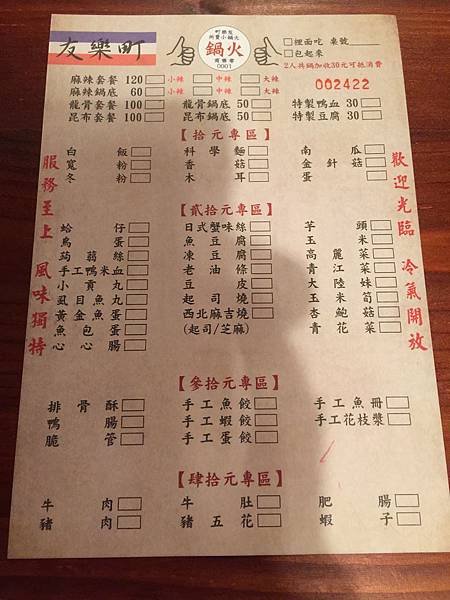 友樂町
町樂友
所賣小鍋火
鍋火
商標章
0001
裡面吃 桌號
包起來
2人共鍋加收30元可抵消費
002422
麻辣套餐 120 小辣 中辣 大辣
麻辣鍋底 60 小辣 中辣 大辣
龍骨套餐 100 龍骨鍋底 50 特製鴨血 30
昆布套餐 100 昆布鍋底 50 特製豆腐 30
【拾元專區】
白飯 科學麵 南瓜
寬粉 香菇 金針菇
冬粉 木耳 蛋
服務至上 風味獨特
歡迎光臨 冷氣開放
【貳拾元專區】
蛤仔 日式蟹味絲 芋頭
鳥蛋 魚豆腐 玉米
蒟蒻絲 凍豆腐 高麗菜
手工鴨米血 老油條 青江菜
小貢丸 豆皮 大陸妹
虱目魚丸 起司燒 玉米筍
黃金魚蛋 西北麻吉燒 杏鮑菇
魚包蛋 (起司/芝麻) 青花菜
心心腸
【參拾元專區】
排骨酥 手工魚餃 手工魚冊
鴨腸 手工蝦餃 手工花枝漿
脆管 手工蛋餃
【肆拾元專區】
牛肉 牛肚 肥腸
豬肉 豬五花 蝦子